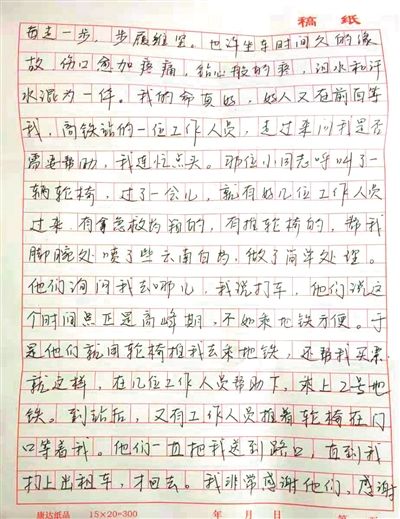 稿 纸
每走一步，步履维艰。也许坐车时间久的缘
故，伤口愈加疼痛，钻心般的疼，泪水和汗
水混为一体。我的命真好，好人又在前面等
我，高铁站的一位工作人员，走过来问我是否
需要帮助，我连忙点头。那位小同志呼叫了一
辆轮椅，过了一会儿，就有好几位工作人员
过来，有拿急救药箱的，有推轮椅的，帮我
脚腕处喷了些云南白药，做了简单处理。
他们询问我去哪儿，我说打车，他们说这
个时间点正是高峰期，不如乘地铁方便。于
是他们就用轮椅推我去乘地铁，还帮我买票，
就这样，在几位工作人员帮助下，乘上2号地
铁。到站后，又有工作人员推着轮椅在门
口等着我。他们一直把我送到路口，直到我
打上出租车，才回去。我非常感谢他们，感谢
康达纸品 15×20=300 年 月 日 第